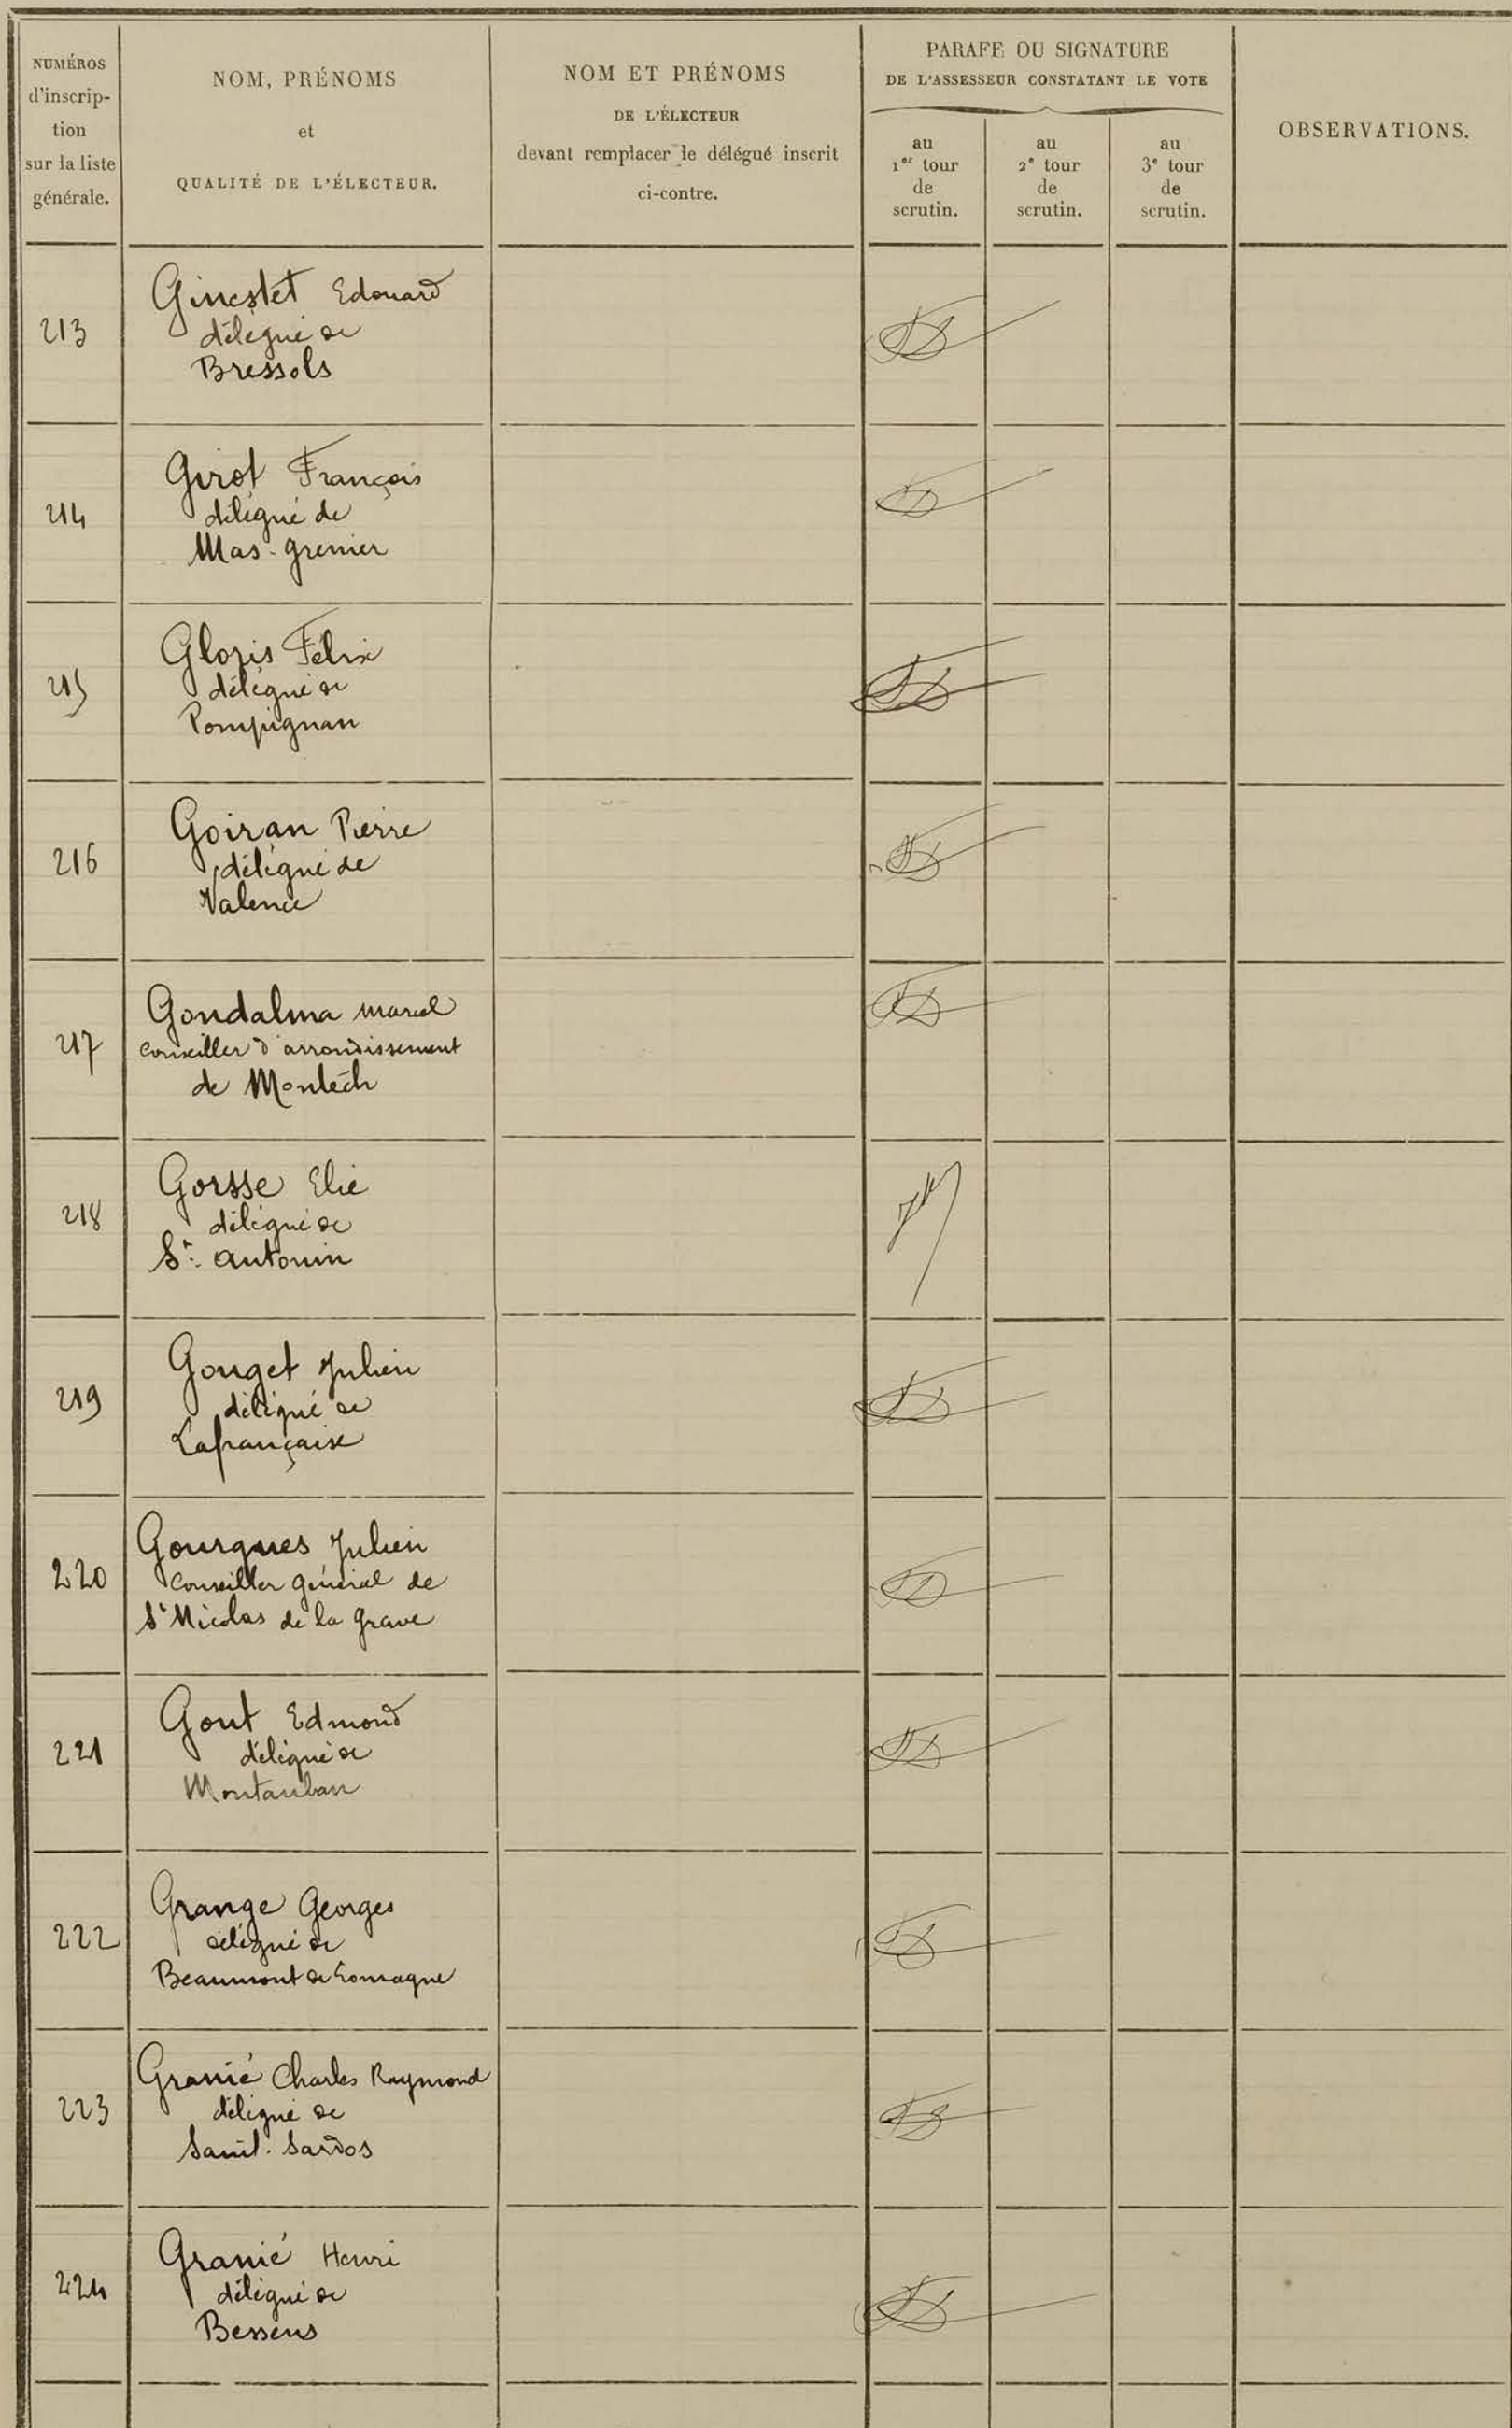 NUMÉROS
d'inscrip-
tion
sur la liste
générale.
NOM, PRÉNOMS
et
QUALITÉ DE L'ÉLECTEUR.
NOM ET PRÉNOMS
DE L'ÉLECTEUR
devant remplacer le délégué inscrit
ci-contre.
PARAFE OU SIGNATURE
DE L'ASSESSEUR CONSTATANT LE VOTE
au
1er tour
de
scrutin.
au
2e tour
de
scrutin.
au
3e tour
de
scrutin.
OBSERVATIONS.
213
Ginestet Edouard
délégué de
Bressols
214
Girot François
délégué de
Mas-grenier
215
Gloris Félix
délégué de
Pompignan
216
Goiran Pierre
délégué de
Valence
217
Gondalma Marcel
Conseiller d'arrondissement
de Montech
218
Gorsse Elie
délégué de
St. Antonin
219
Gouget Julien
délégué de
Lafrançaise
220
Gourgues Julien
Conseiller général de
St Nicolas de la grave
221
Gout Edmond
délégué de
Montauban
222
Grange Georges
délégué de
Beaumont de Lomagne
223
Granié Charles Raymond
délégué de
Saint-Sardos
224
Granié Henri
délégué de
Bessens